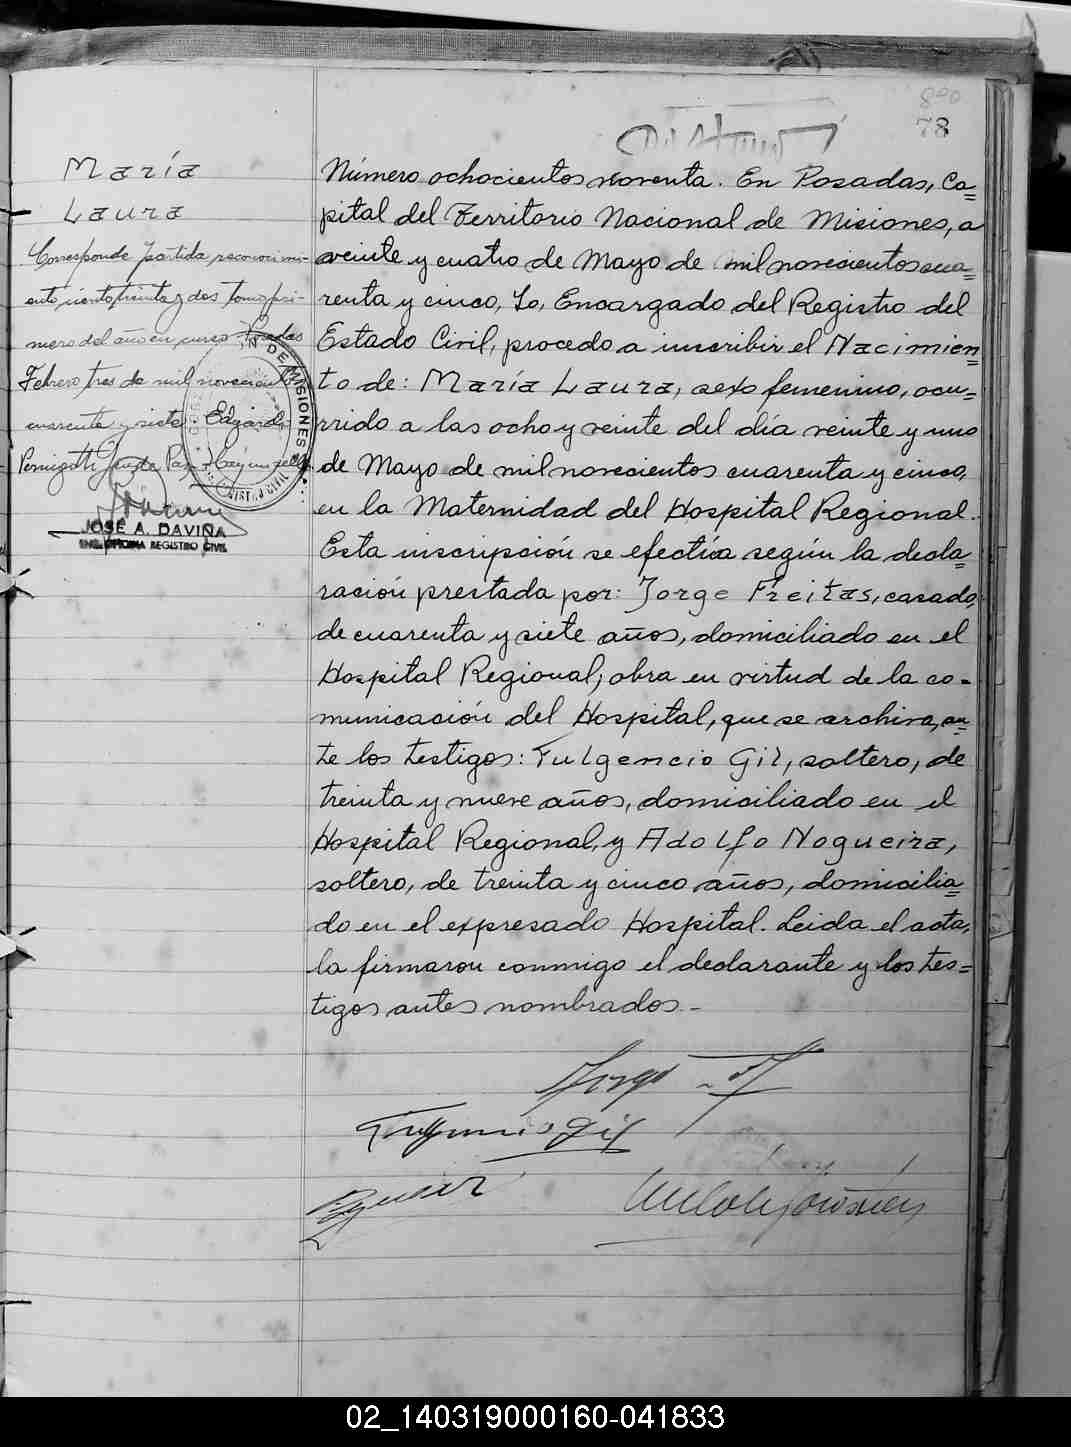 800
78
María
Laura
Corresponde partida, reconocimi-
ento, ciento treinta y dos, tomo pri-
mero del año en curso. Posadas
Febrero, tres de mil novecientos
cuarenta y siete. Edgardo
Juez de Paz
JOSÉ A. DAVIÑA
ENC. OFICINA REGISTRO CIVIL
DE MISIONES
Número ochocientos noventa. En Posadas, Ca=
pital del Territorio Nacional de Misiones, a
veinte y cuatro de Mayo de mil novecientos cua=
renta y cinco, Yo, Encargado del Registro del
Estado Civil, procedo a inscribir el Nacimien=
to de: María Laura, sexo femenino, ocu=
rrido a las ocho y veinte del día veinte y uno
de Mayo de mil novecientos cuarenta y cinco,
en la Maternidad del Hospital Regional.
Esta inscripción se efectúa según la decla=
ración prestada por: Jorge Freitas, casado,
de cuarenta y siete años, domiciliado en el
Hospital Regional; obra en virtud de la co=
municación del Hospital, que se archiva, an=
te los testigos: Fulgencio Gil, soltero, de
treinta y nueve años, domiciliado en el
Hospital Regional, y Adolfo Nogueira,
soltero, de treinta y cinco años, domicilia=
do en el expresado Hospital. Leida el acta,
la firmaron conmigo el declarante y los tes=
tigos antes nombrados.-
Fulgencio Gil
02_140319000160-041833